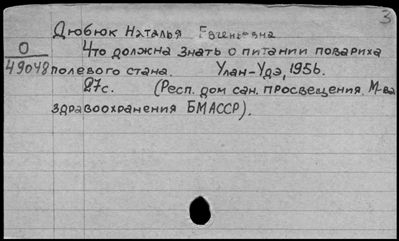 3
Дюбюк Наталья Евгеньевна
О
49048
Что должна знать о питании повариха
полевого стана. Улан-Удэ, 1956.
27с. (Респ. дом сан. просвещения М-ва
здравоохранения БМАССР).